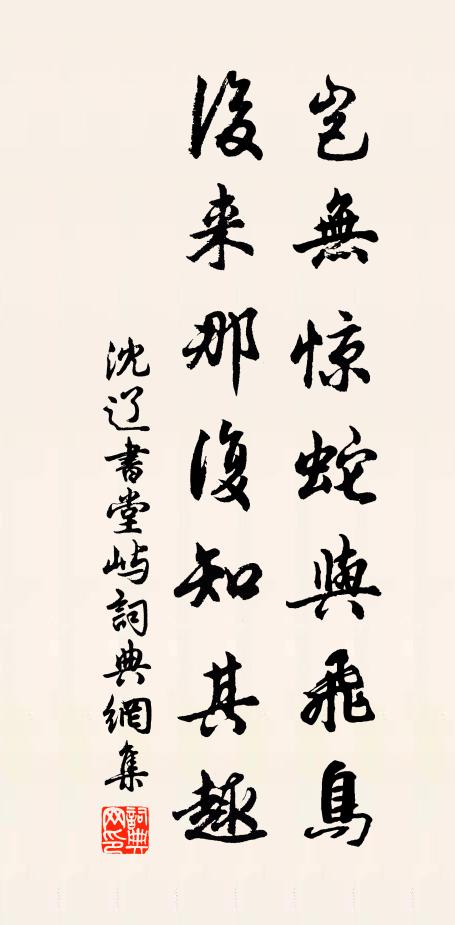 豈無惊蛇與飛鳥
後来那復知其趣
沈辽書堂屿詞典網集
詞典网印